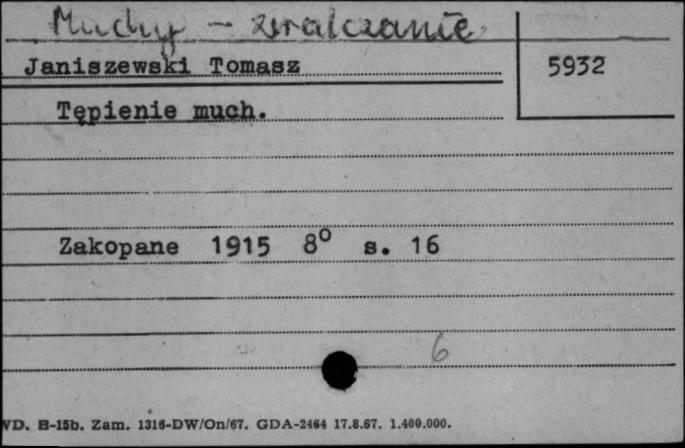 Muchy - zwalczanie
Janiszewski Tomasz 5932
Tępienie much.
Zakopane 1915 8° s. 16
6
WD. B-15b. Zam. 1316-DW/On/67. GDA-2464 17.8.67. 1.400.000.